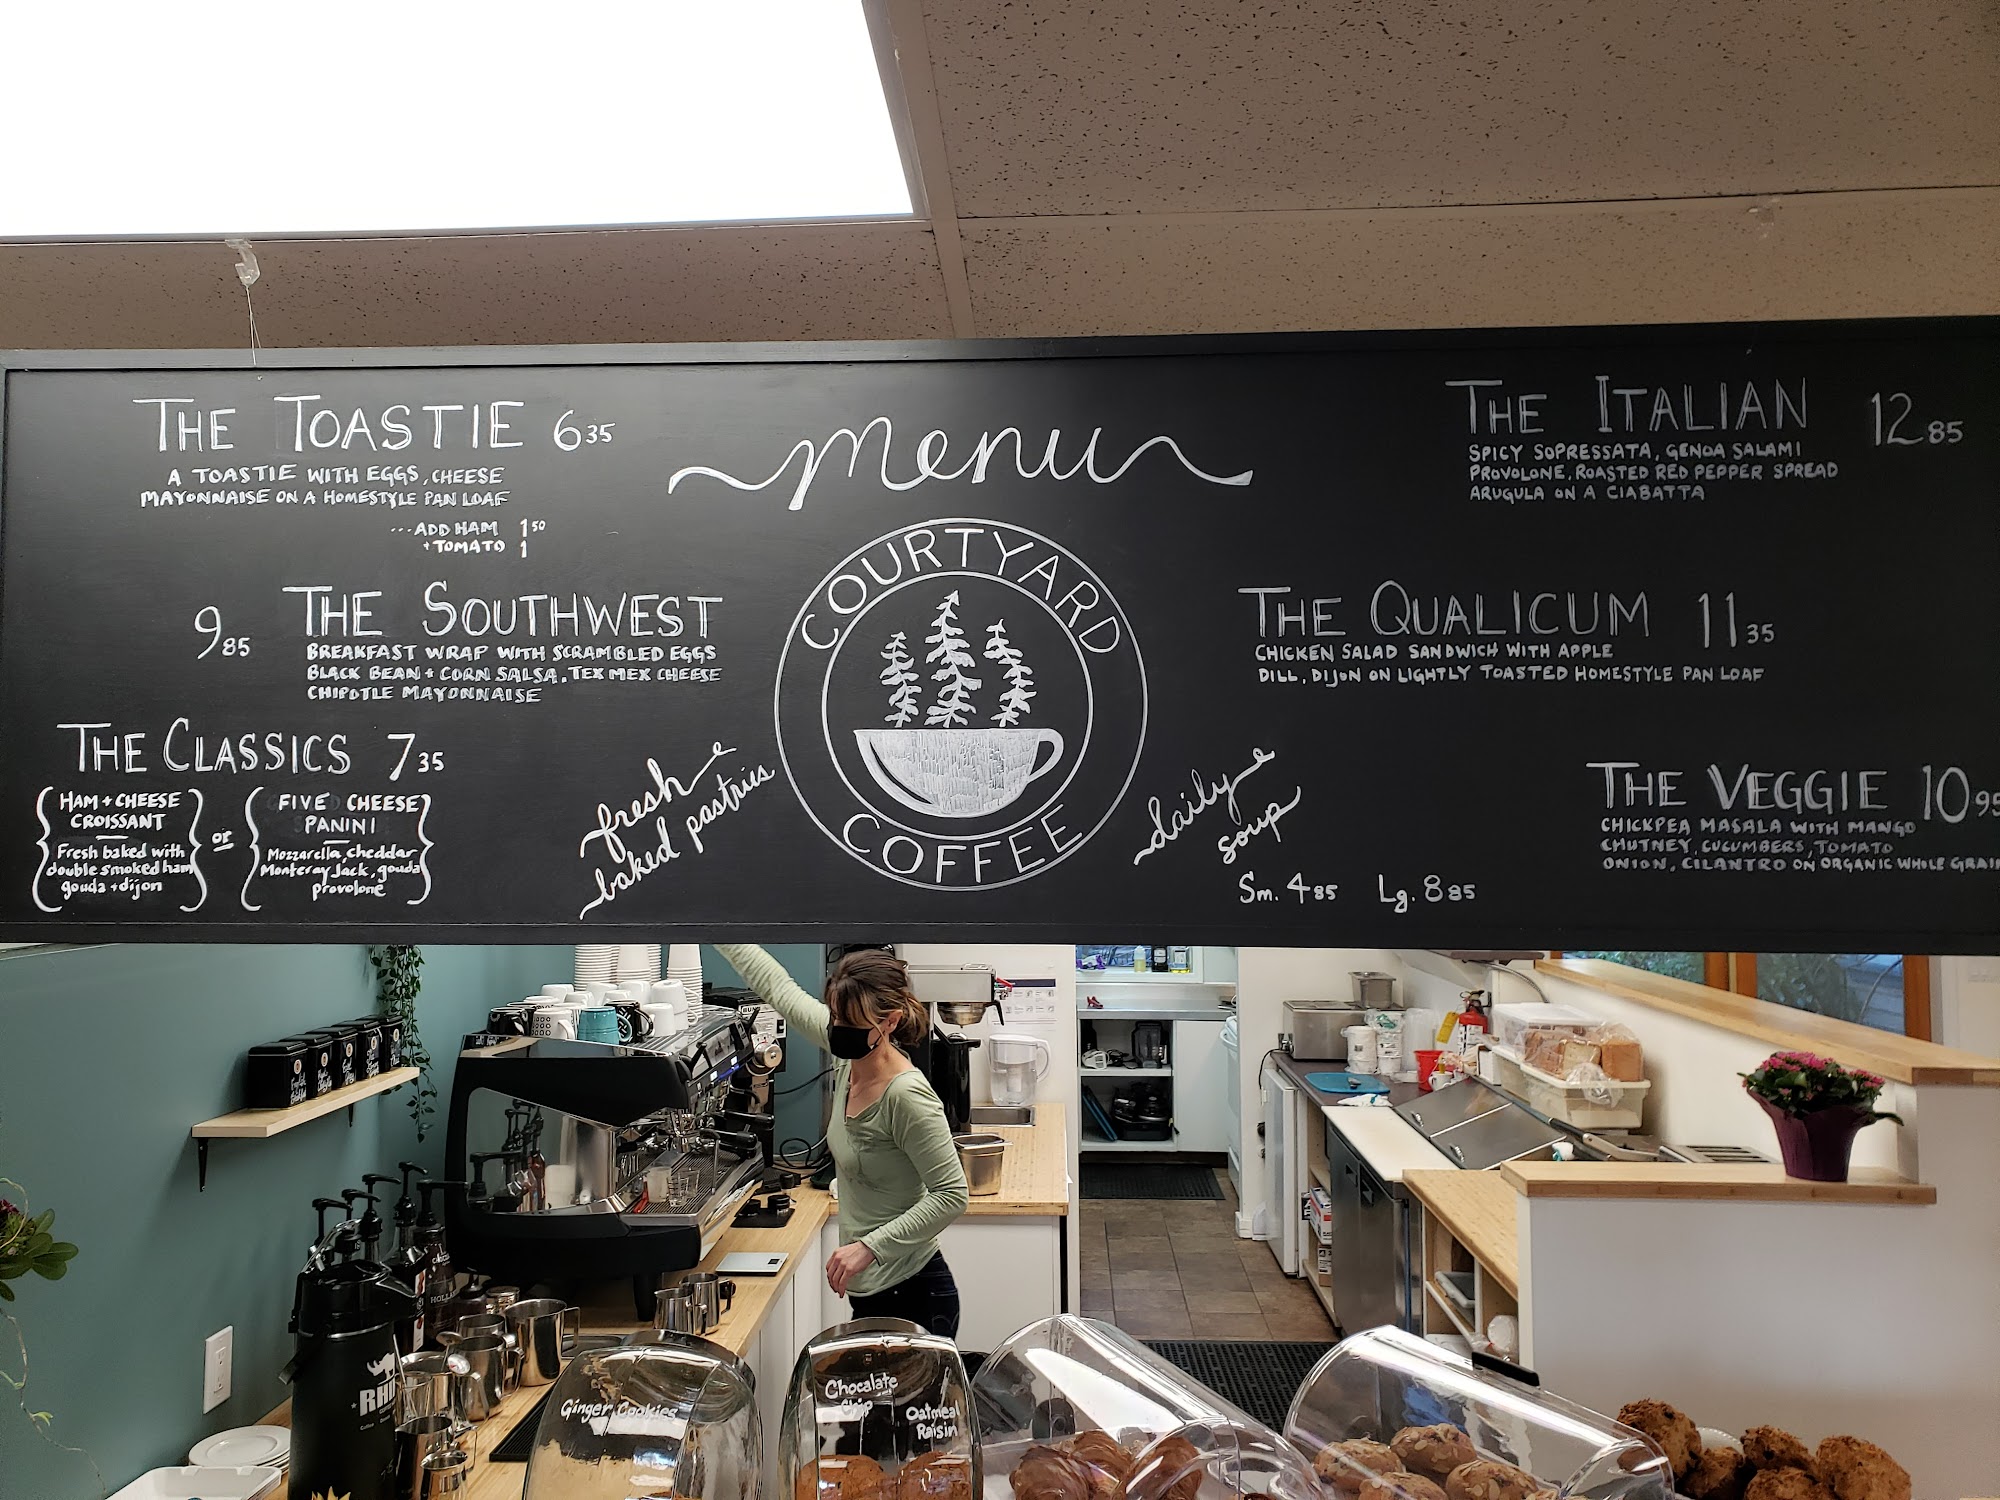 THE TOASTIE 6 35
A TOASTIE WITH EGGS, CHEESE
MAYONNAISE ON A HOMESTYLE PAN LOAF
...ADD HAM 1 50
+ TOMATO 1
9 85 THE SOUTHWEST
BREAKFAST WRAP WITH SCRAMBLED EGGS
BLACK BEAN + CORN SALSA, TEX MEX CHEESE
CHIPOTLE MAYONNAISE
THE CLASSICS 7 35
HAM + CHEESE
CROISSANT
Fresh baked with
double smoked ham
gouda + dijon
or
FIVE CHEESE
PANINI
Mozzarella, cheddar
Monteray Jack, gouda
provolone
menu
COURTYARD
COFFEE
fresh
baked pastries
daily
soup
Sm. 4 85 Lg. 8 85
THE ITALIAN 12 85
SPICY SOPRESSATA, GENOA SALAMI
PROVOLONE, ROASTED RED PEPPER SPREAD
ARUGULA ON A CIABATTA
THE QUALICUM 11 35
CHICKEN SALAD SANDWICH WITH APPLE
DILL, DIJON ON LIGHTLY TOASTED HOMESTYLE PAN LOAF
THE VEGGIE 10 95
CHICKPEA MASALA WITH MANGO
CHUTNEY, CUCUMBERS, TOMATO
ONION, CILANTRO ON ORGANIC WHOLE GRAIN
RHI
Ginger Cookies
Chocolate
Chip
Oatmeal
Raisin